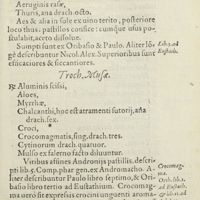 Aeruginis rasæ,
Thuris, ana drach. octo.
Aes & alia in sole ex uino terito, posteriore
loco thus: pastillos confice: cumque usus po-
stulabit, aceto dissolue.
Sumpti sunt ex Oribasio & Paulo. Aliter lon-
gè describuntur Nicol. Alex. Superioribus sunt
efficaciores & siccantiores.
Troch. Musæ.
℞ Aluminis scissi,
Aloes,
Myrrhæ,
Chalcanthi, hoc est atramenti sutorij, ana
drach. sex.
Croci,
Crocomagmatis, sing. drach. tres.
Cytinorum drach. quatuor.
Mulso ex falerno facto diluuntur.
Viribus affines Andronijs pastillis. descri-
pti lib. 5. Comp. phar. gen. ex Andromacho. A-
liter describuntur Paulo libro septimo, & Ori-
basio libro tertio ad Eustathium. Crocomag-
ma uerò sit expressis crocini unguenti aroma-
Lib. 3. ad
Eustath.
Crocomag-
ma.
ad Eustath.